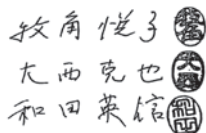 牧角悦子
大西克也
和田英信